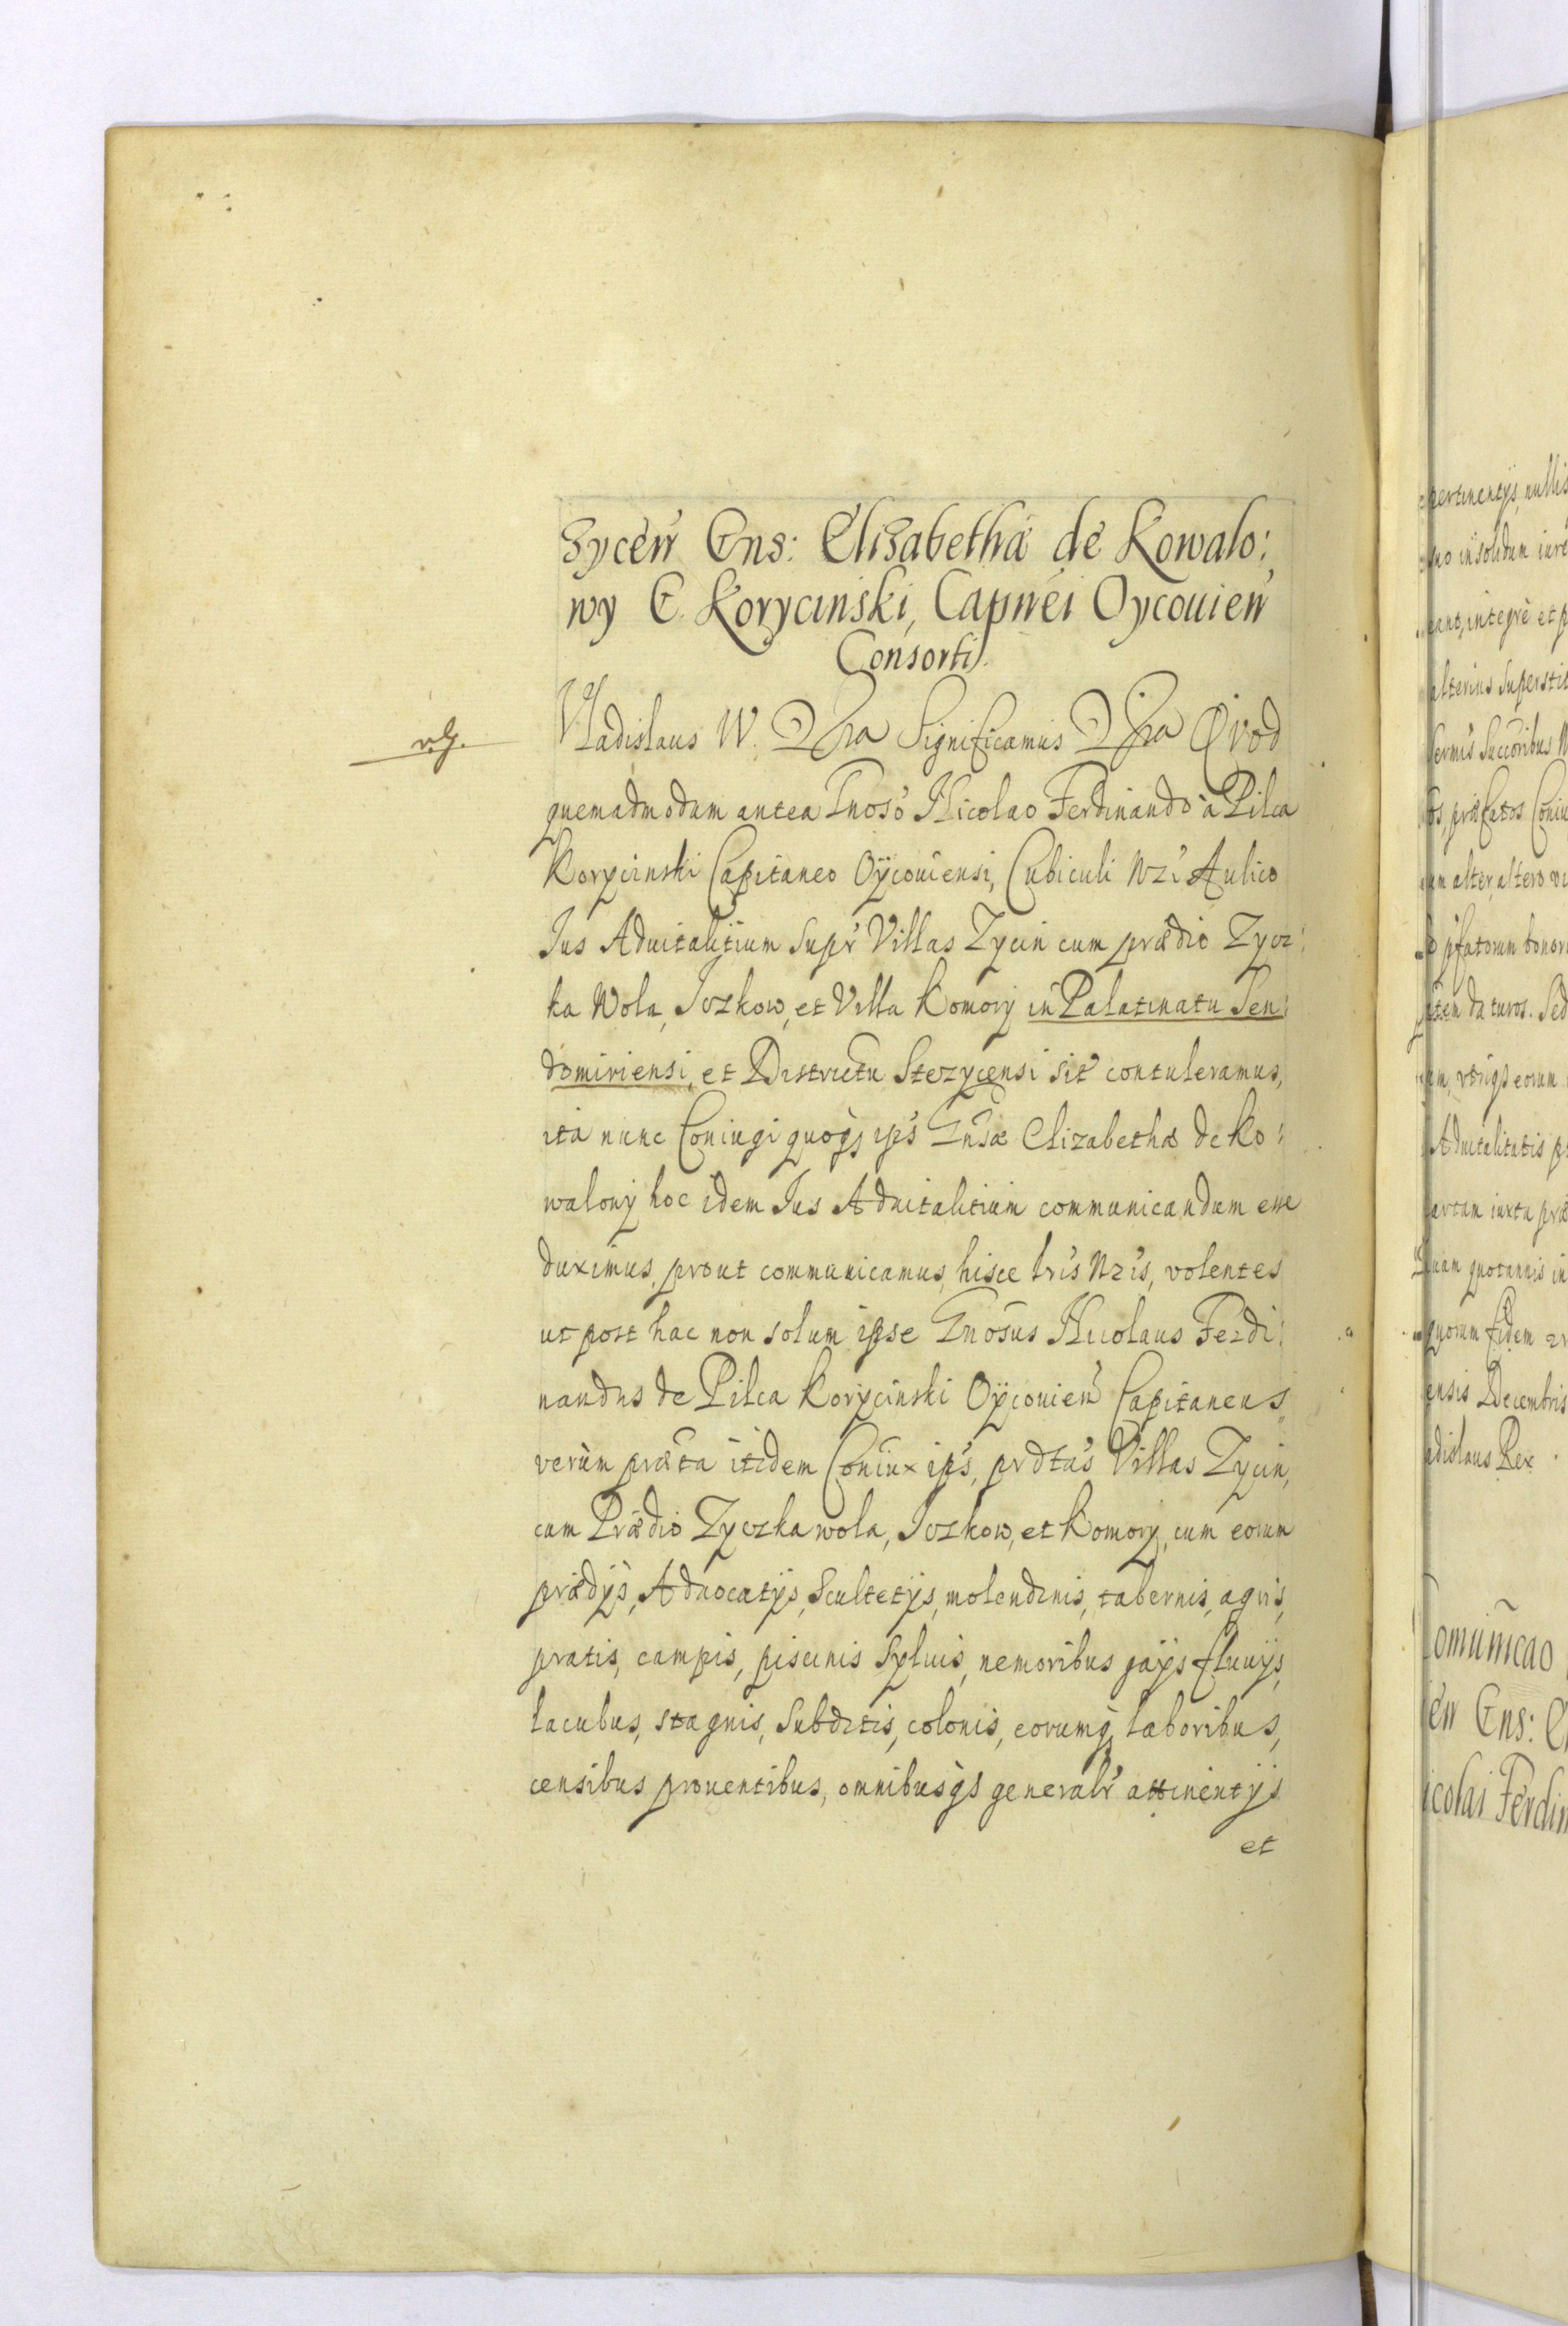 zyceń Gns: Elisabethæ de Kowalo:
wy G. Korycinski, Capnei Oycouień
Consorti.
Vladislaus IV. Significamus Qvod
quemadmodum antea Gnoso Nicolao Ferdinando à Pilca
Korycinski Capitaneo Oÿcouiensi, Cubiculi Nri Aulico
Jus Aduitalitium supr Villas Zycin cum prædio Zycz:
ka Wola, Jczkow, et Villa Komory in Palatinatu Sen:
domiriensi, et Districtu Stezycensi sit contuleramus,
ita nunc Coniugi quoq3 ips Gnsæ Elizabethæ de Ko:
walowy hoc idem Jus Aduitalitium communicandum esse
duximus, prout communicamus, hisce lris Nris, volentes
ut post hac non solum ipse Gnosus Nicolaus Ferdi:
nandus de Pilca Korycinski Oÿcouień Capitaneus,
verùm præta itidem Coniux ips, prdtas Villas Zycin,
cum Prædio Zyczka wola, Jczkow, et Komory, cum eorum
prædÿs, Aduocatÿs, Scultetÿs, molendinis, tabernis, agris,
pratis, campis, piscinis Syluis, nemoribus gaÿs fluuÿs,
lacubus, stagnis, Subditis, colonis, eorumq3 laboribus,
censibus prouentibus, omnibusq3 generalr attinentÿs
et
pertinentÿs, nullis
in solidum iure
integrè et p
alterius superstit
Sermis Succoribus N
præfatos Coniu
alter, altero vi
pfatorum bonor
daturos. Sed
eorum
Aduitalitatis p
iuxta præ
quotannis in
quorum fidem
Decembris
Rex.
Gns: E
Ferdin